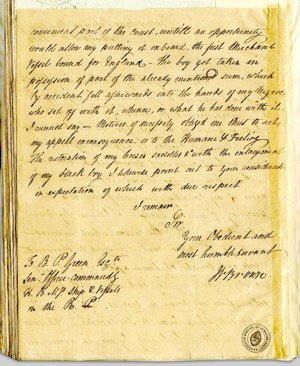 convenient part of the Coast, untill an opportunity
would allow my putting it on board, the first Merchant
Vessel bound for England – The boy got taken in
possession of part of the already mentioned sum, which
by accident fell afterwards into the hands of my Negroe,
who set of with it, whence, or what he has done with it
I cannot say – Motives of necessity obliged me thus to act,
my appeal in consequence, is to the Humane & Feeling
The restoration of my horses saddles &c with the enlargement
of my black boy I likewise point out to your consideration
in expectation of which with due respect
I remain
Sir
Your Obedient and
most humble servant
W Brown
To B. P. Green Esqre
Sen. Officer commandg
H. B. M. Ships & Vessels
in the R. P.